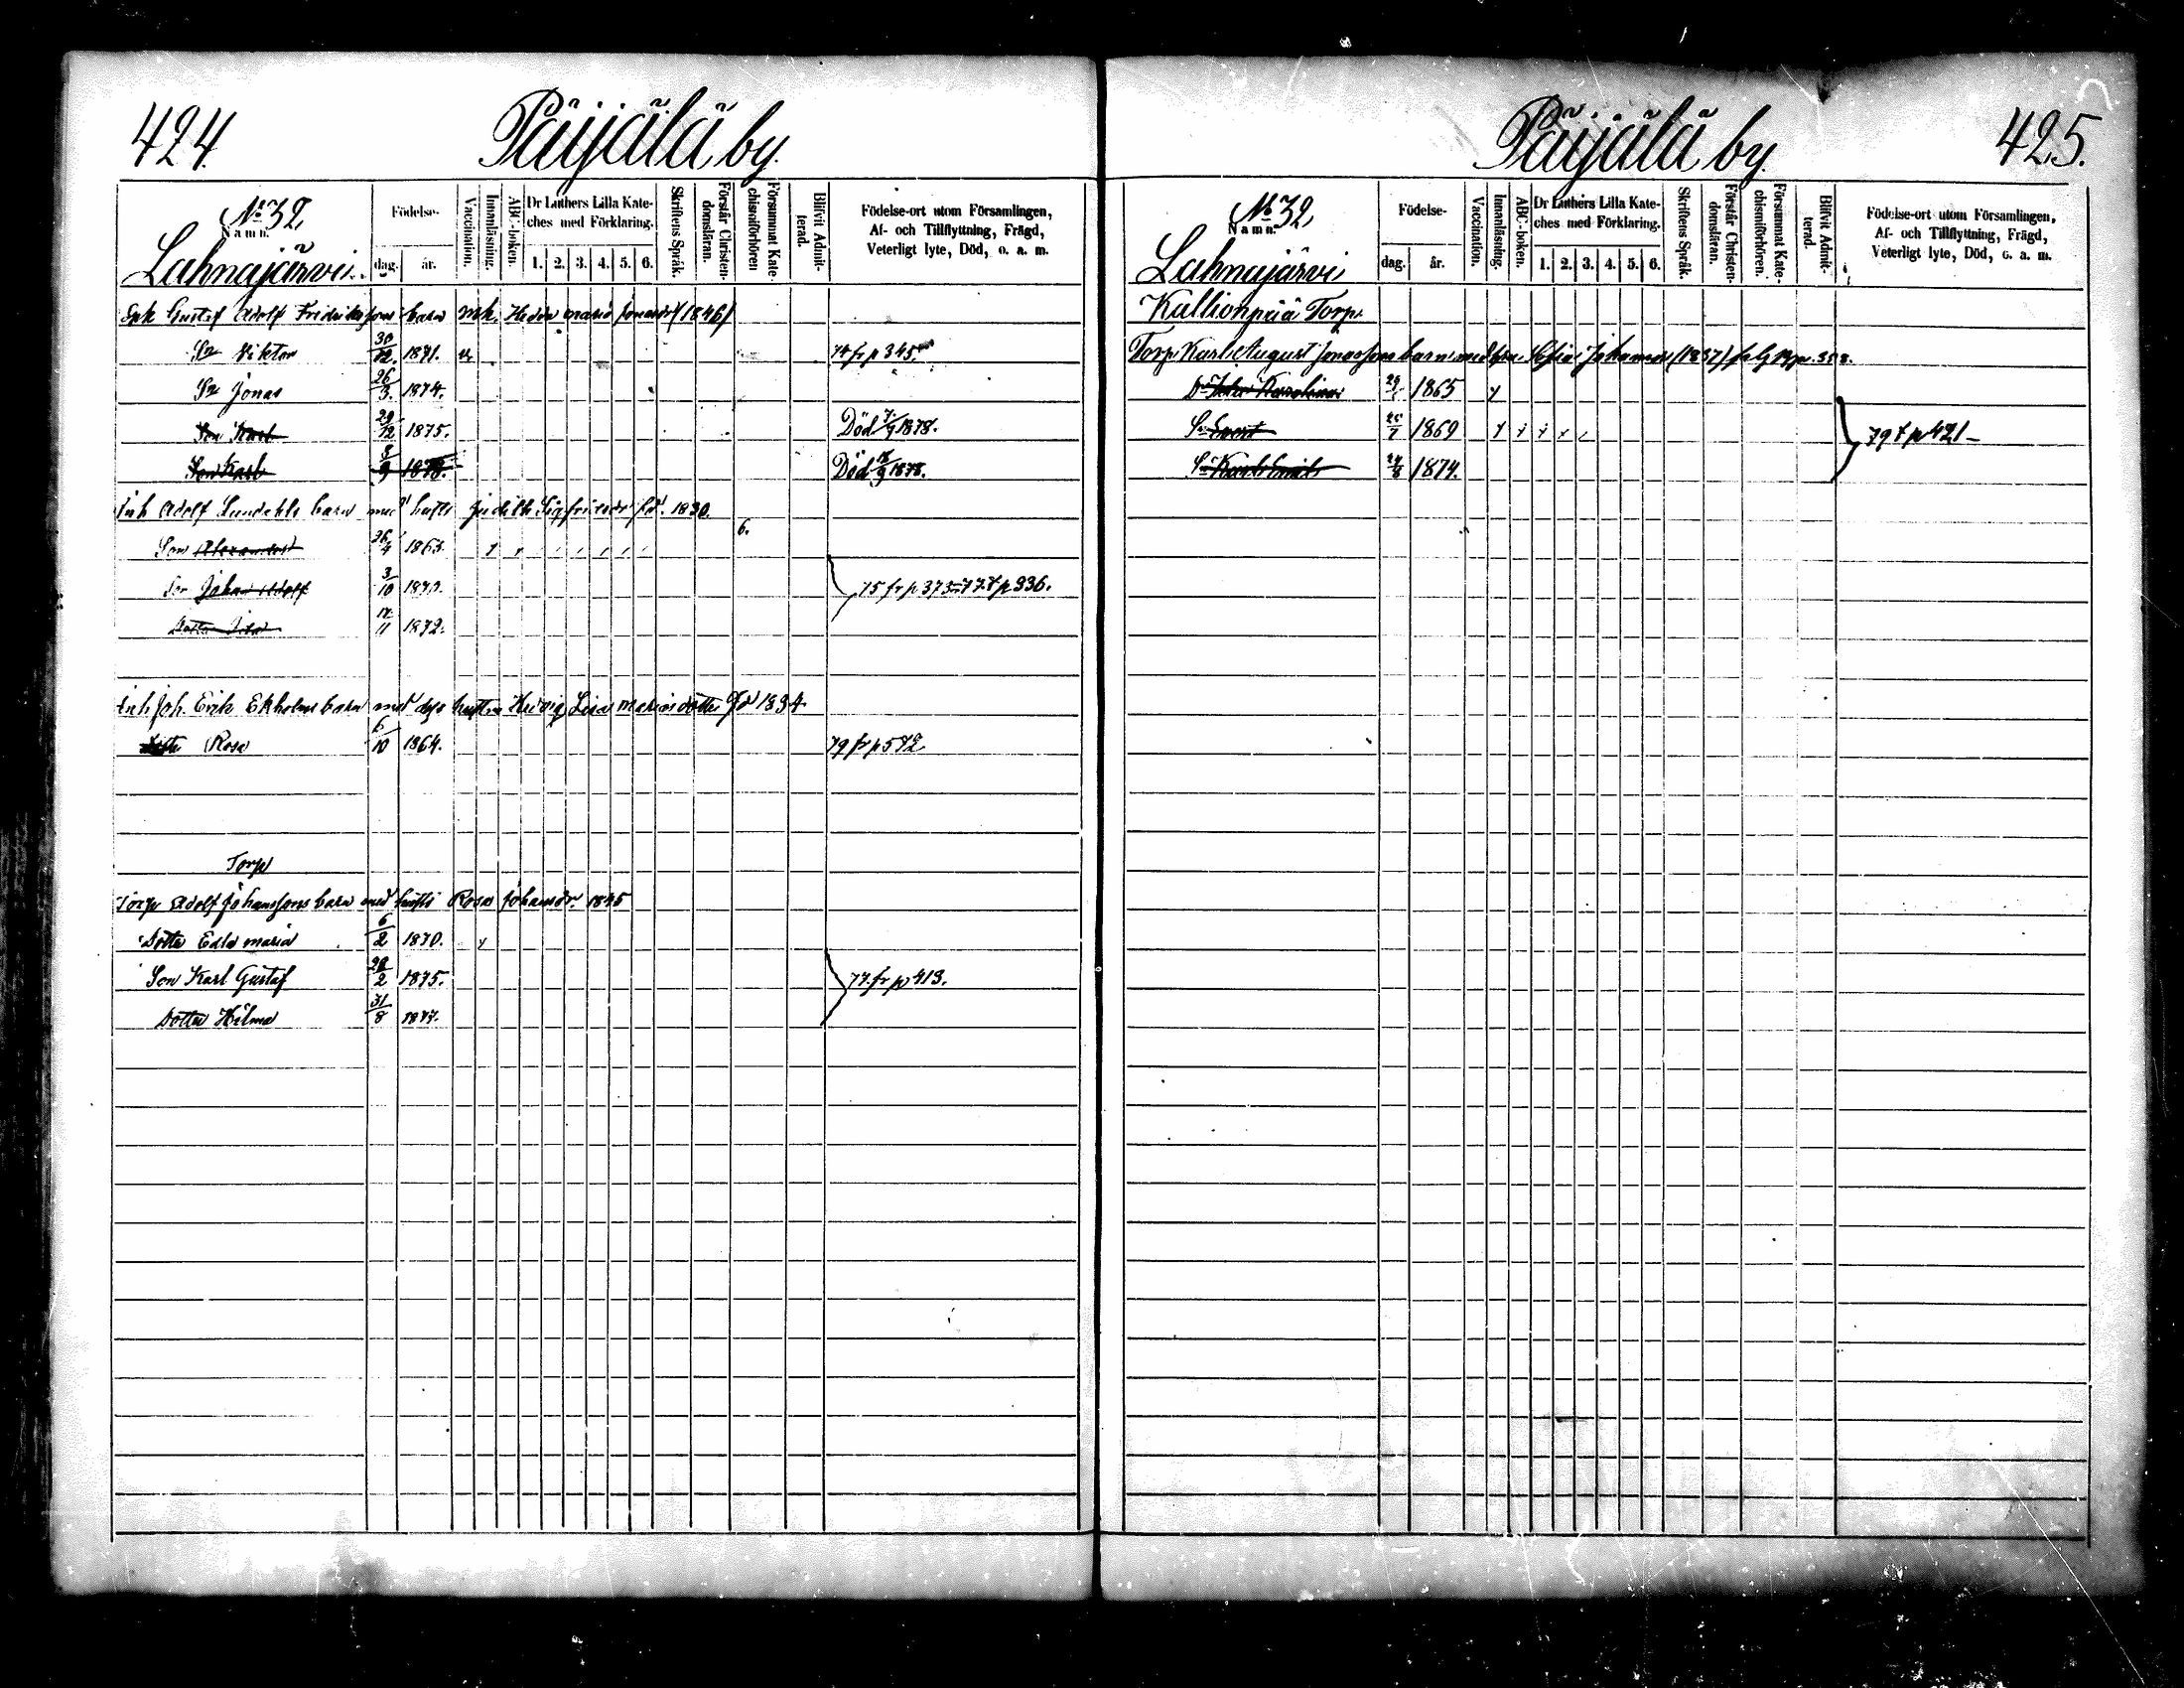 424.
Päijälä by.
No 32.
Namn.
Lahnajärvi.
Födelse-
dag.
år.
Vaccination.
Innanläsning.
ABC-boken.
Dr Luthers Lilla Kate-
ches med Förklaring.
1. 2. 3. 4. 5. 6.
Skriftens Språk.
Förstår Christen-
domsläran.
Försummat Kate-
chismiförhören
Blifvit Admit-
terad.
Födelse-ort utom Församlingen,
Af- och Tillflyttning, Frägd,
Veterligt lyte, Död, o. a. m.
Gustaf Adolf Fredriksons barn m.h. Hedda Maria Jonasdr (1846)
Sn Viktor 30/12. 1871. 74 fr p 345.
Sn Jonas 26/3. 1874.
Son Karl 29/12 1875. Död 7/9 1878.
Son Karl 8/9 1878. Död 9 1878.
Inh Adolf Lundahls barn med hustr Judith Sigfridsdr född 1830.
6.
Son Alexander 26/4 1863.
Son Johan Adolf 3/10 75 fr p 373 - 77 t p 336.
Dotter 11 1872.
Inh Joh. Erik Ekholms barn med dess hustru Hedvig Lisa Mariadotter fd 1834
Rosa 6/10 1864. 79 fr p 572
Torp
Torp Adolf Johanssons barn med hustr Rosa Johansdr. 1845
Dotter Edla Maria 6/2 1870.
Son Karl Gustaf 28/2 1875. 77 fr p 413.
Dotter Hilma 31/8 1877.
425.
Päijälä by.
No 32.
Namn.
Lahnajärvi
Födelse-
dag.
år.
Vaccination.
Innanläsning.
ABC-boken.
Dr Luthers Lilla Kate-
ches med Förklaring.
1. 2. 3. 4. 5. 6.
Skriftens Språk.
Förstår Christen-
domsläran.
Försummat Kate-
chismiförhören.
Blifvit Admit-
terad.
Födelse-ort utom Församlingen,
Af- och Tillflyttning, Frägd,
Veterligt lyte, Död, o. a. m.
Kallionpää Torp.
Torp Karl August Jonassons barn med Sofia Johansdr (1837)
Dr Karolina 1865
Sn Evert 1869 79 t p 421
Sn Karl Emil 1874.